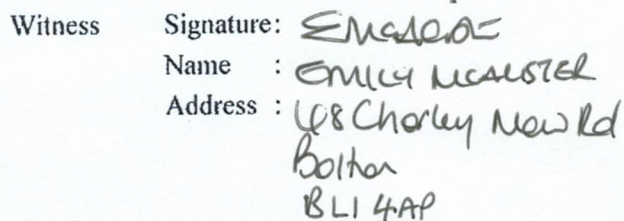 Witness Signature:
Name : EMILY MCALISTER
Address : 48 Chorley New Rd
Bolton
BL1 4AP